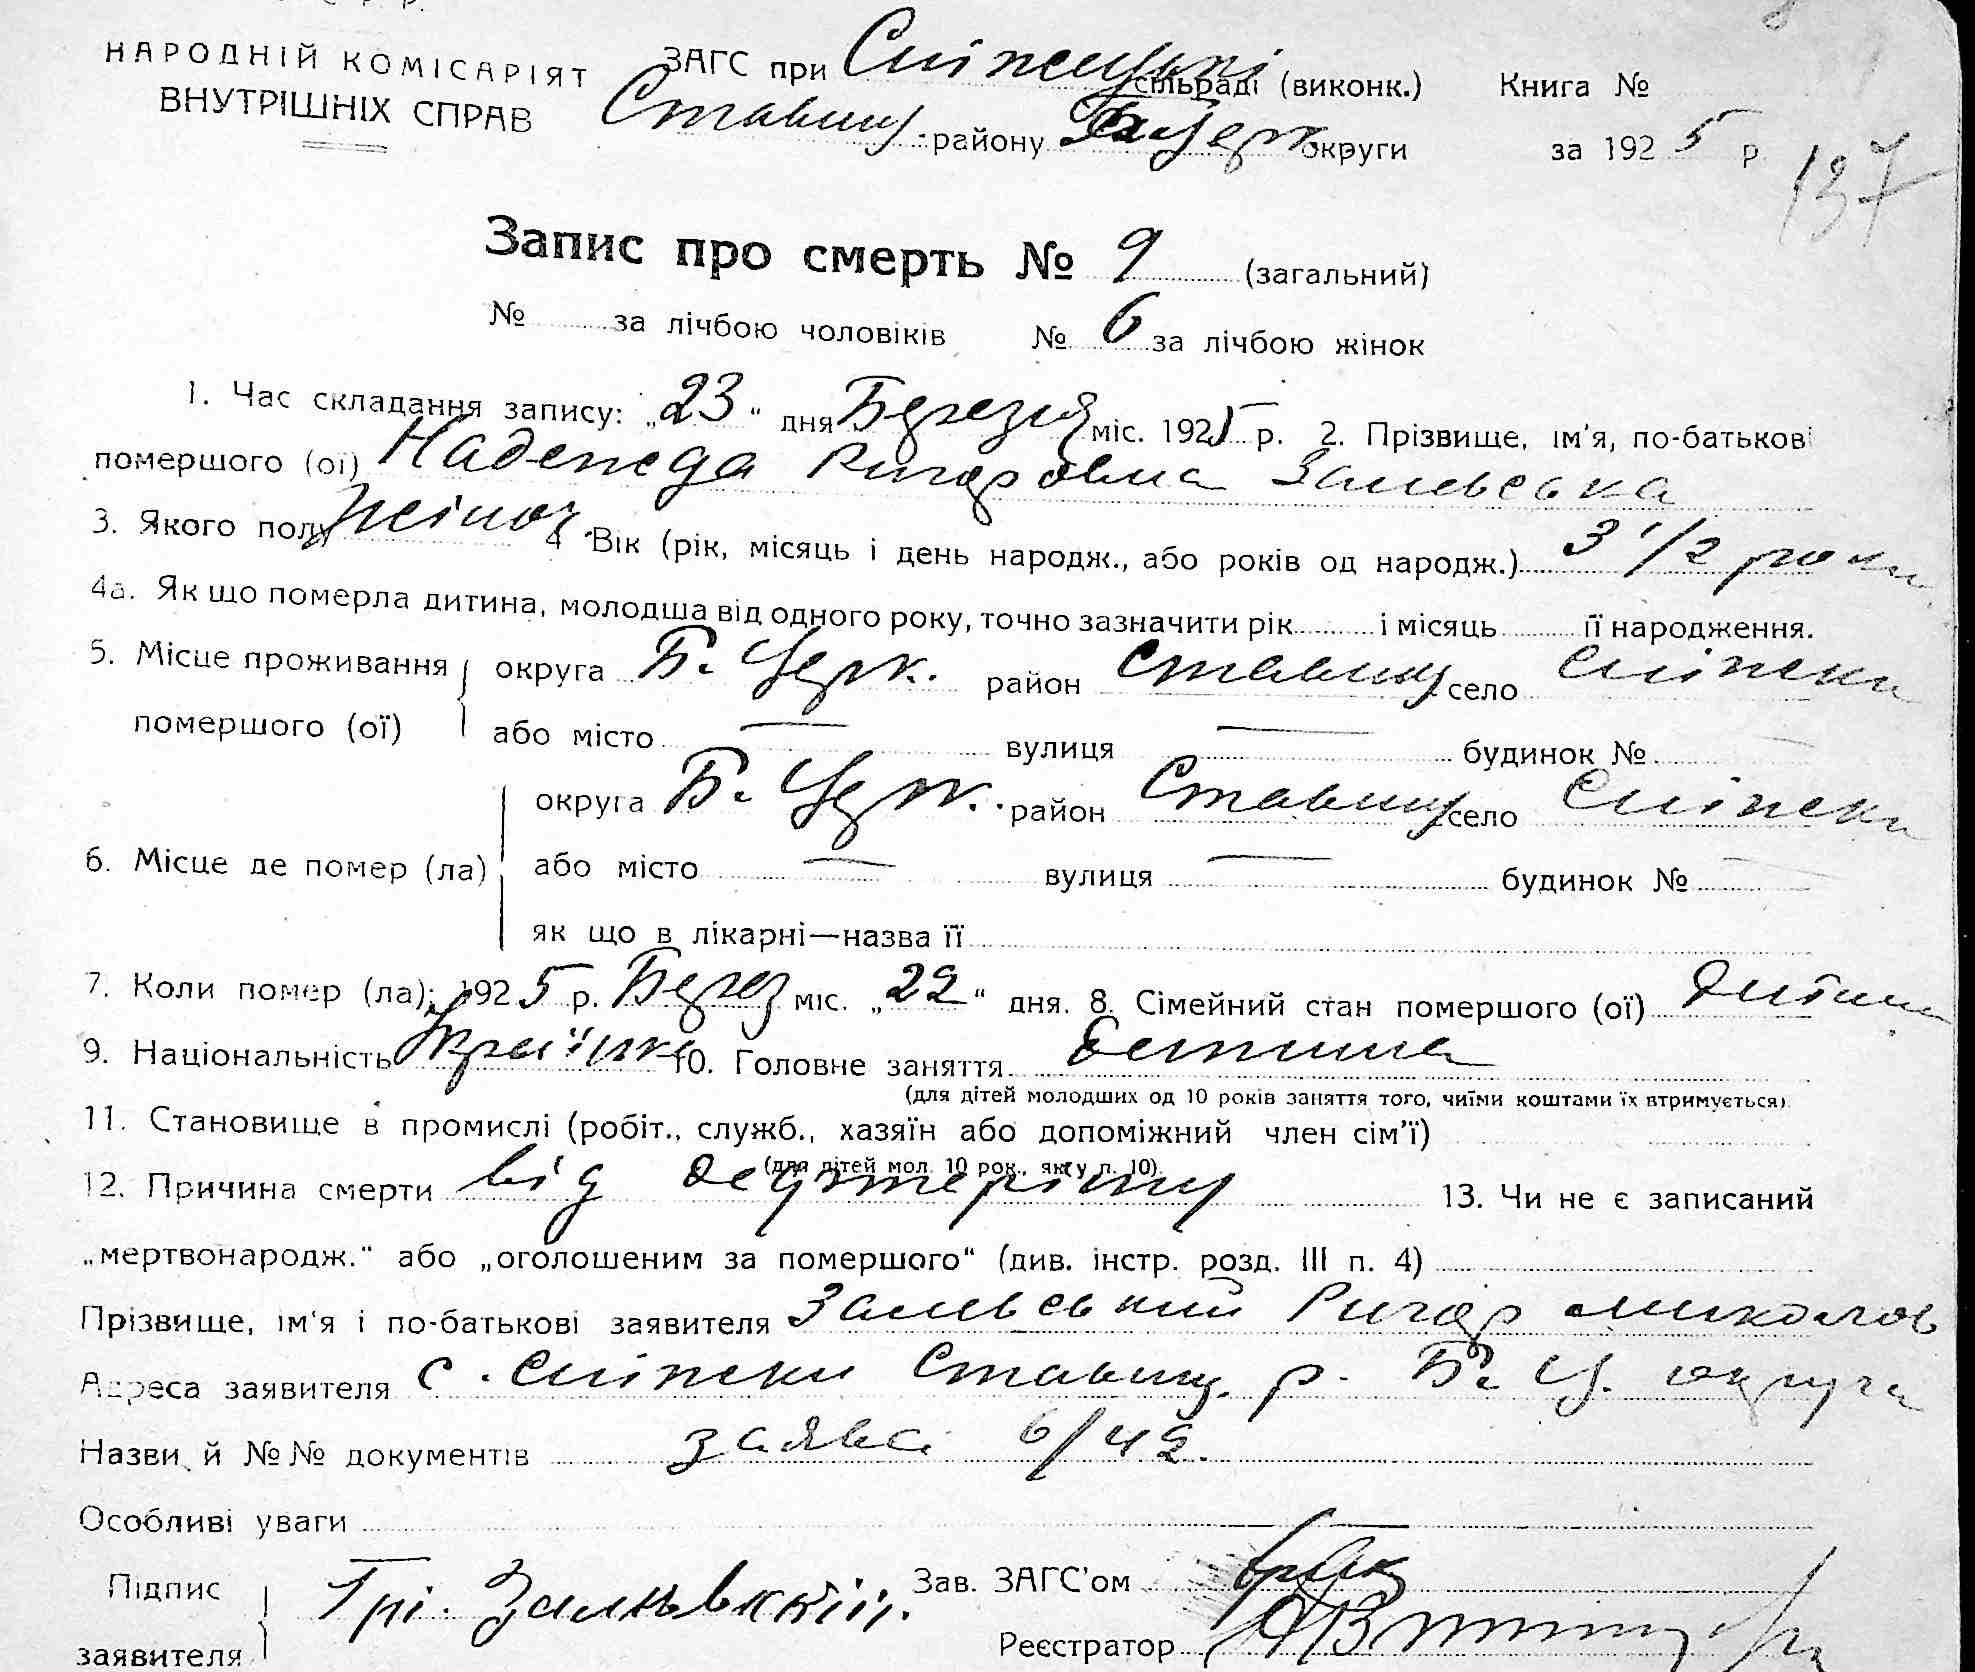 НАРОДНІЙ КОМІСАРІЯТ
ВНУТРІШНІХ СПРАВ
ЗАГС при сільраді (виконк.)
Ставищ. району Б. Церк округи
Книга №
за 1925 р
137
Запис про смерть № 9 (загальний)
№ за лічбою чоловіків № 6 за лічбою жінок
1. Час складання запису: „23" дня Березня міс. 1925 р. 2. Прізвище, ім'я, по-батькові
помершого (ої) Надежда Ригоровна Залевська
3. Якого полу жіноч 4 Вік (рік, місяць і день народж., або років од народж.) 3 1/2 роки
4а. Як що померла дитина, молодша від одного року, точно зазначити рік і місяць її народження.
5. Місце проживання помершого (ої) округа Б. Церк. район Ставищ село Сніжки
або місто — вулиця — будинок №
6. Місце де помер (ла) округа Б. Церк. район Ставищ село Сніжки
або місто — вулиця — будинок №
як що в лікарні—назва її
7. Коли помер (ла); 1925 р. Берез міс. „22" дня. 8. Сімейний стан помершого (ої) дитина
9. Національність Українка 10. Головне заняття
(для дітей молодших од 10 років заняття того, чиїми коштами їх втримується)
11. Становище в промислі (робіт., служб., хазяїн або допоміжний член сім'ї)
(для дітей мол. 10 рок., як у п. 10)
12. Причина смерти від 13. Чи не є записаний
„мертвонародж." або „оголошеним за помершого" (див. інстр. розд. III п. 4)
Прізвище, ім'я і по-батькові заявителя Залевський Ригор Миколов
Адреса заявителя с. Сніжки Ставищ. р. Б. Ц. округи
Назви й №№ документів заява 6/42.
Особливі уваги
Підпис заявителя Грі.
Зав. ЗАГС'ом
Реєстратор